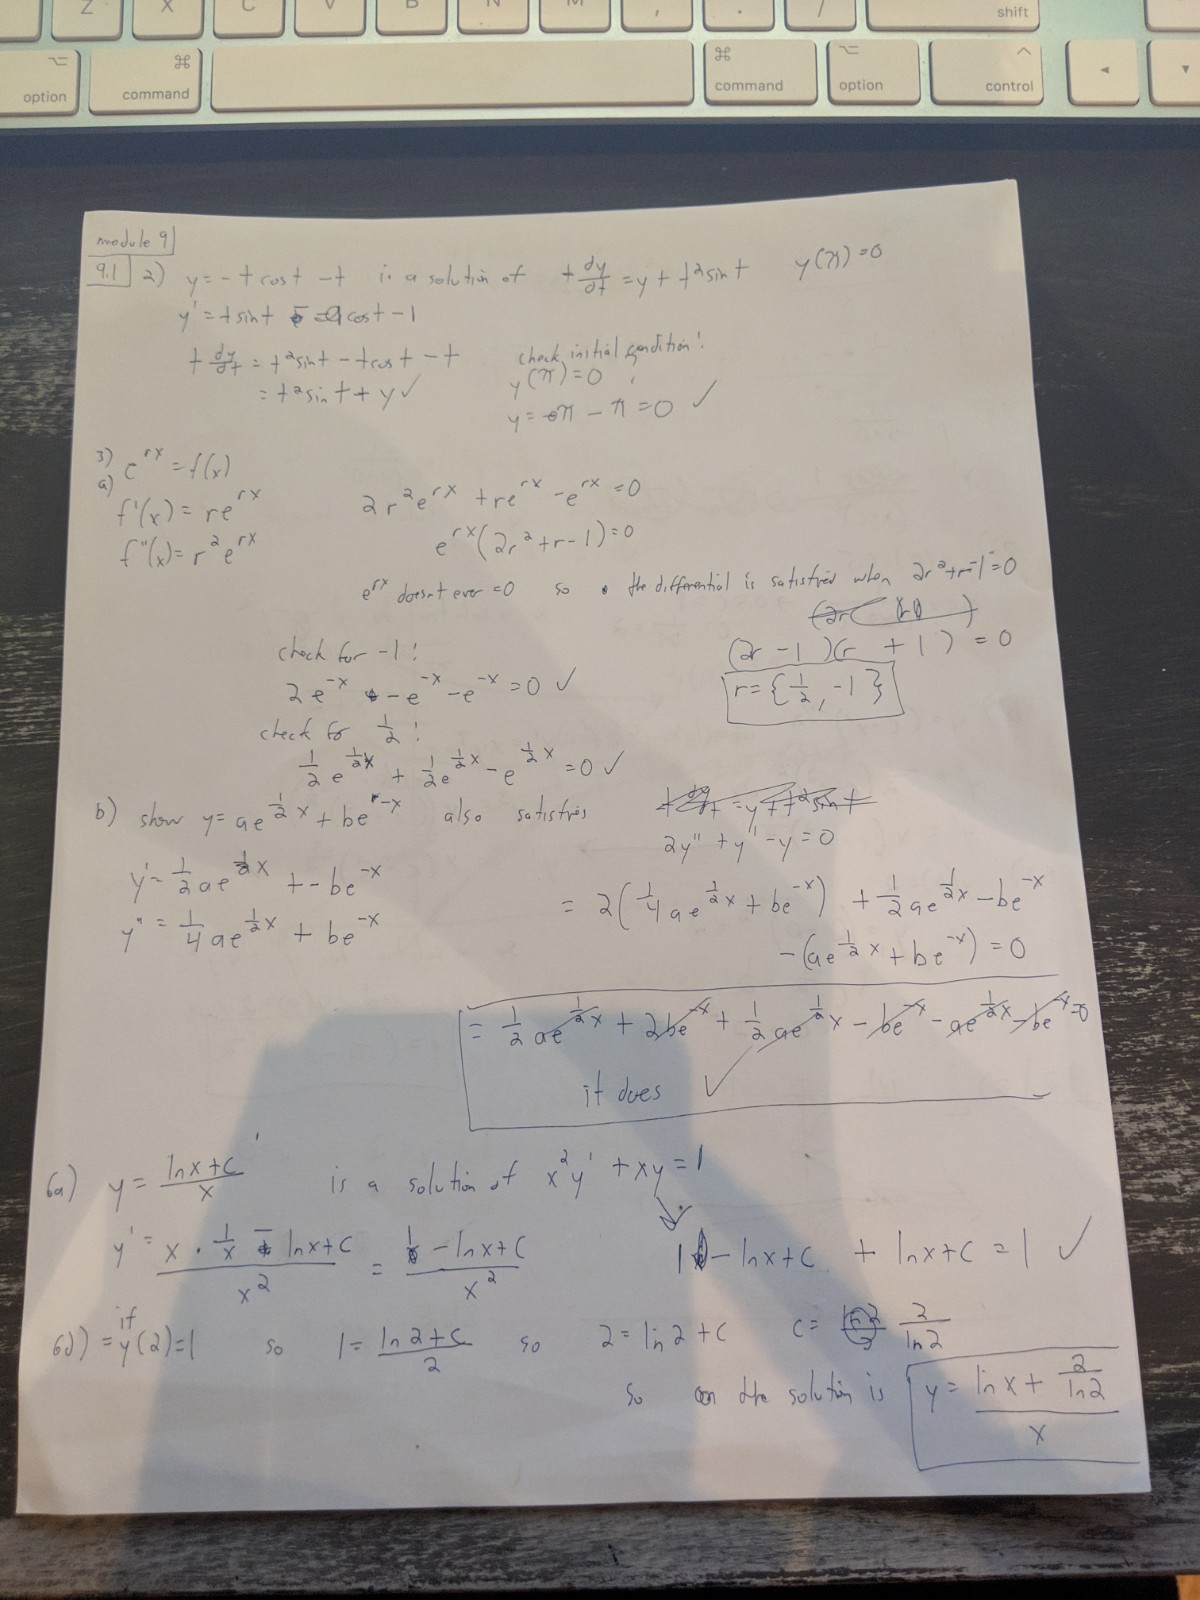 Z X C V B N M , . / shift
option ⌘ command ⌘ command option ^ control ◄ ▼
module 9
9.1 2) y = -t cost - t is a solution of t dy/dt = y + t²sin t y(π)=0
y' = tsint - cost - 1
t dy/dt = t²sint - tcost - t
= t²sin t + y ✓
check initial condition:
y(π)=0
y = π - π = 0 ✓
3) a) e^rx = f(x)
f'(x) = re^rx
f''(x) = r²e^rx
2r²e^rx + re^rx - e^rx = 0
e^rx(2r²+r-1)=0
e^rx doesnt ever =0 so the differential is satisfied when 2r²+r-1=0
(2r - 1)(r + 1) = 0
r = {1/2, -1}
check for -1:
2e^-x - e^-x - e^-x = 0 ✓
check for 1/2:
1/2 e^1/2x + 1/2 e^1/2x - e^1/2x = 0 ✓
b) show y = ae^1/2x + be^-x also satisfies
2y'' + y' - y = 0
y' = 1/2 ae^1/2x + -be^-x
y'' = 1/4 ae^1/2x + be^-x
= 2(1/4 ae^1/2x + be^-x) + 1/2 ae^1/2x - be^-x
- (ae^1/2x + be^-x) = 0
= 1/2 ae^1/2x + 2be^-x + 1/2 ae^1/2x - be^-x - ae^1/2x - be^-x = 0
it does ✓
6a) y = lnx+C / x is a solution of x²y' + xy = 1
y' = x · 1/x - lnx+C / x² = 1 - lnx+C / x²
1 - lnx+C + lnx+C = 1 ✓
6d) = if y(2)=1 so 1 = ln2+C / 2 so 2 = ln2+C C = 2/ln2
so the solution is y = lnx + 2/ln2 / x